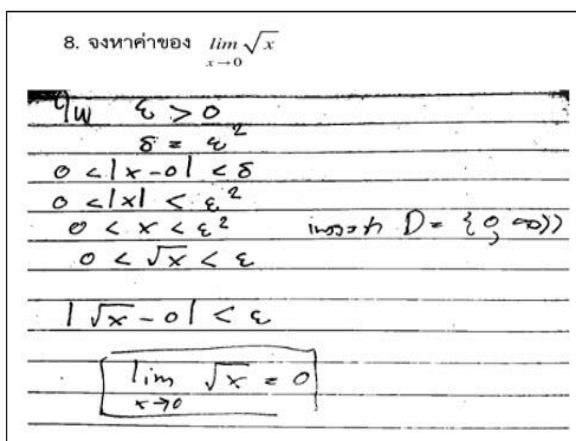 8. จงหาค่าของ lim √x
x→0
ให้ ε > 0
δ = ε²
0 < |x - 0| < δ
0 < |x| < ε²
0 < x < ε² เพราะว่า D = {0, ∞))
0 < √x < ε
|√x - 0| < ε
lim √x = 0
x→0